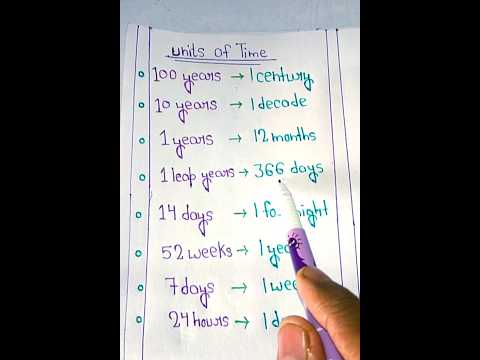 Units of Time
100 years → 1 century
10 years → 1 decade
1 years → 12 months
1 leap years → 366 days
14 days → 1
52 weeks → 1
7 days → 1
24 hours → 1